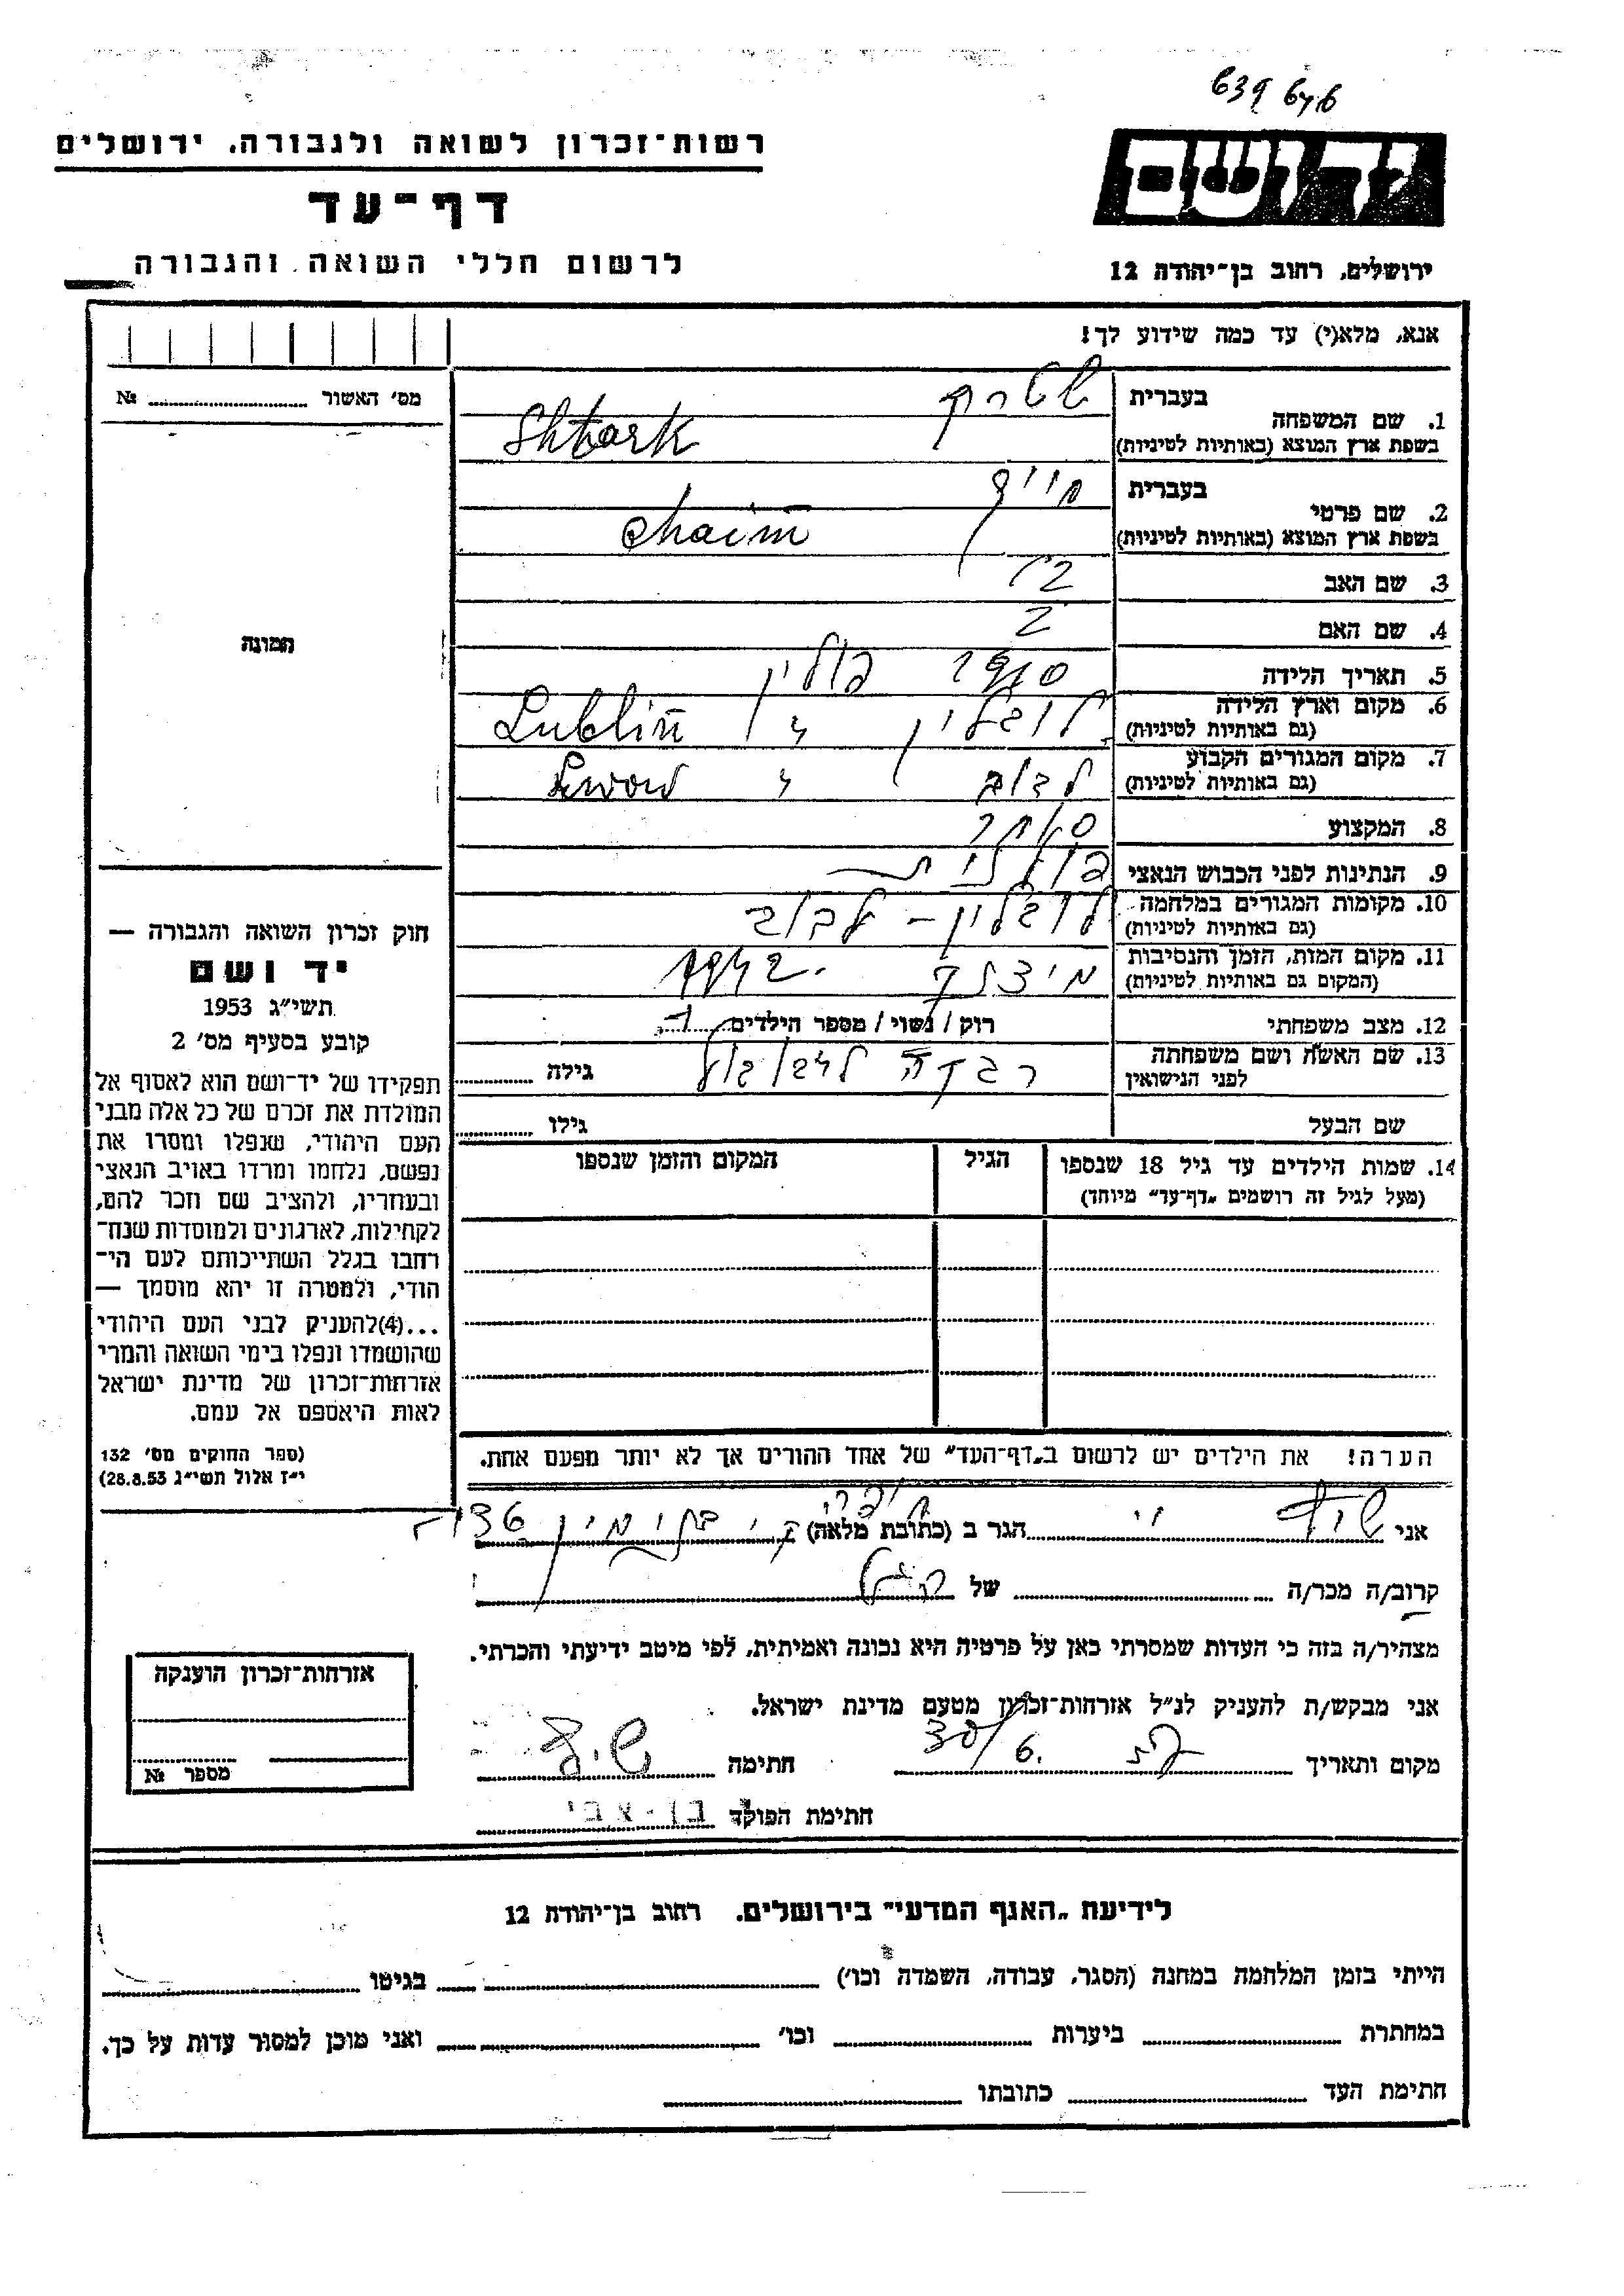 639 646
רשות-זכרון לשואה ולגבורה. ירושלים
דף-עד
לרשום חללי השואה והגבורה
יד ושם
ירושלים, רחוב בן-יהודה 12
אנא, מלא(י) עד כמה שידוע לך!
מס׳ האשור № 
בעברית שטרק
1. שם המשפחה
בשפת ארץ המוצא (באותיות לטיניות) Shtark
בעברית חיים
2. שם פרטי
בשפת ארץ המוצא (באותיות לטיניות) Chaim
3. שם האב
4. שם האם
5. תאריך הלידה 1910 פולין
6. מקום וארץ הלידה לובלין " Lublin
(גם באותיות לטיניות)
7. מקום המגורים הקבוע לבוב " Lwow
(גם באותיות לטיניות)
8. המקצוע סוחר
9. הנתינות לפני הכבוש הנאצי פולנית
10. מקומות המגורים במלחמה לובלין - לבוב
(גם באותיות לטיניות)
11. מקום המות, הזמן והנסיבות 1942
(המקום גם באותיות לטיניות)
12. מצב משפחתי רוק / נשוי / מספר הילדים
13. שם האשה ושם משפחתה רבקה גילה
לפני הנישואין
שם הבעל גילו
14. שמות הילדים עד גיל 18 שנספו הגיל המקום והזמן שנספו
(מעל לגיל זה רושמים „דף-עד" מיוחד)
הערה! את הילדים יש לרשום ב„דף-העד" של אחד ההורים אך לא יותר מפעם אחת.
תמונה
חוק זכרון השואה והגבורה —
יד ושם
תשי״ג 1953
קובע בסעיף מס׳ 2
תפקידו של יד-ושם הוא לאסוף אל
המולדת את זכרם של כל אלה מבני
העם היהודי, שנפלו ומסרו את
נפשם, נלחמו ומרדו באויב הנאצי
ובעוזריו, ולהציב שם וזכר להם,
לקהילות, לארגונים ולמוסדות שנח-
רחבו בגלל השתייכותם לעם הי-
הודי, ולמטרה זו יהא מוסמך —
...(4)להעניק לבני העם היהודי
שהושמדו ונפלו בימי השואה והמרי
אזרחות-זכרון של מדינת ישראל
לאות היאספם אל עמם.
(ספר החוקים מס׳ 132
י״ז אלול תשי״ג 28.8.53)
אני הגר ב (כתובת מלאה) בנימין
קרוב/ה מכר/ה של
מצהיר/ה בזה כי העדות שמסרתי כאן על פרטיה היא נכונה ואמיתית, לפי מיטב ידיעתי והכרתי.
אני מבקש/ת להעניק לנ״ל אזרחות-זכרון מטעם מדינת ישראל.
מקום ותאריך 30/6. חתימה
חתימת הפוקד בן-צבי
אזרחות-זכרון הוענקה
מספר №
לידיעת „האגף המדעי" בירושלים. רחוב בן-יהודה 12
הייתי בזמן המלחמה במחנה (הסגר, עבודה, השמדה וכו׳) בגיטו
במחתרת ביערות וכו׳ ואני מוכן למסור עדות על כך.
חתימת העד כתובתו